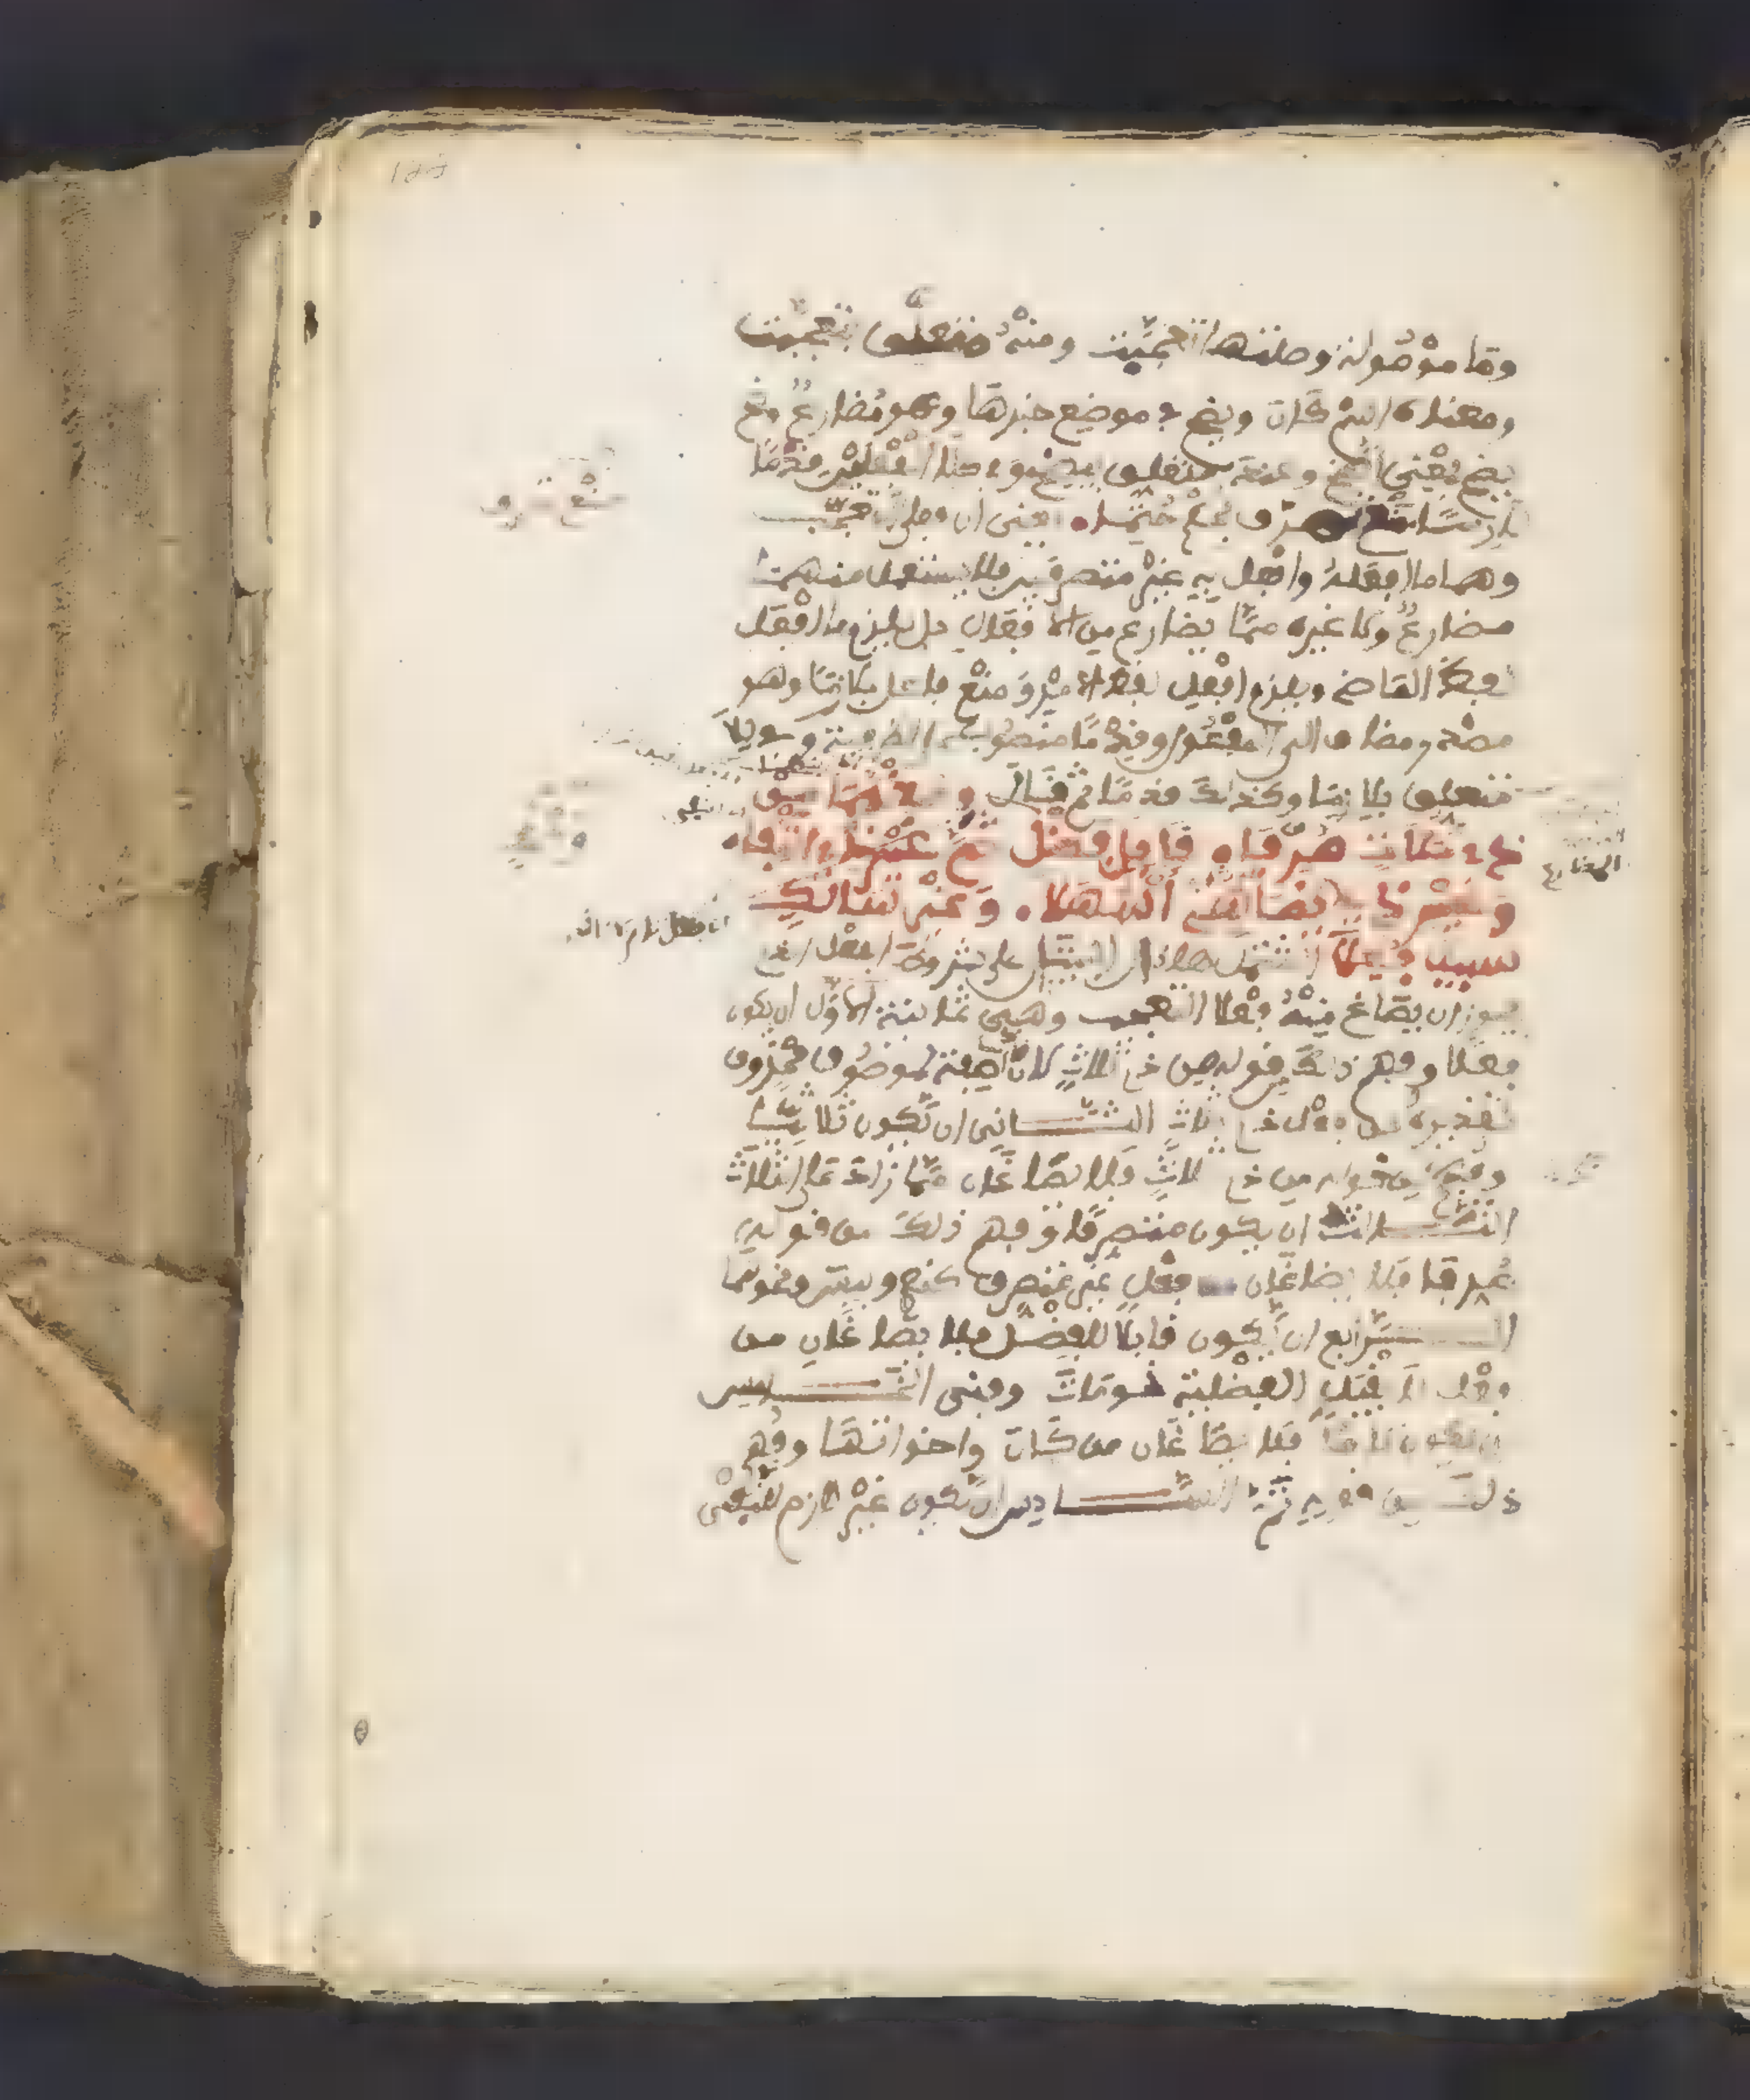 وما موصولة وصلتها تعجبت ومنه متعلق بتعجبت
ومعناه اسم كان ويضح في موضع خبرها وهو مضارع وضح
يضح بمعنى اتضح وعند متعلق بيضح وفي كلا الفعلين قدما
لزما منع تصرف بحكم حتما يعني ان فعلي التعجب
وهما ما افعله وافعل به غير متصرفين فلا يستعمل منهما
مضارع ولا غيره مما يضارع من الافعال بل يلزم ما افعل
لفظ الماضي ويلزم افعل لفظ الامر ومنع فاعل بلزما وهو
مصدر مضاف الى المفعول وقدما منصوب على الظرفية وفي كلا
متعلق بلزما وكذلك قدما ثم قال وصغهما من
ذي ثلاث صرفا قابل فضل تم غير ذي انتفا
وغير ذي وصف يضاهي اشهلا وغير سالك
سبيل فعلا اشتمل هذان البيتان على شروط الفعل الذي
يجوز ان يصاغ منه فعلا التعجب وهي ثمانية الاول ان يكون
فعلا وفهم ذلك من قوله من ذي ثلاث لان صفة لموصوف محذوف
تقديره من فعل ذي ثلاث الثاني ان يكون ثلاثيا
وفهم من قوله من ذي ثلاث فلا يصاغان مما زاد على الثلاث
الثالث ان يكون متصرفا وفهم ذلك من قوله
صرفا فلا يصاغان من فعل غير متصرف كنعم وبيس ونحوهما
الرابع ان يكون قابلا للفضل فلا يصاغان من
فعل لا يقبل الفضلية نحو مات وفني الخامس
ان يكون تاما فلا يصاغان من كان واخواتها وفهم
ذلك من قوله تم السادس ان يكون غير لازم للنفي